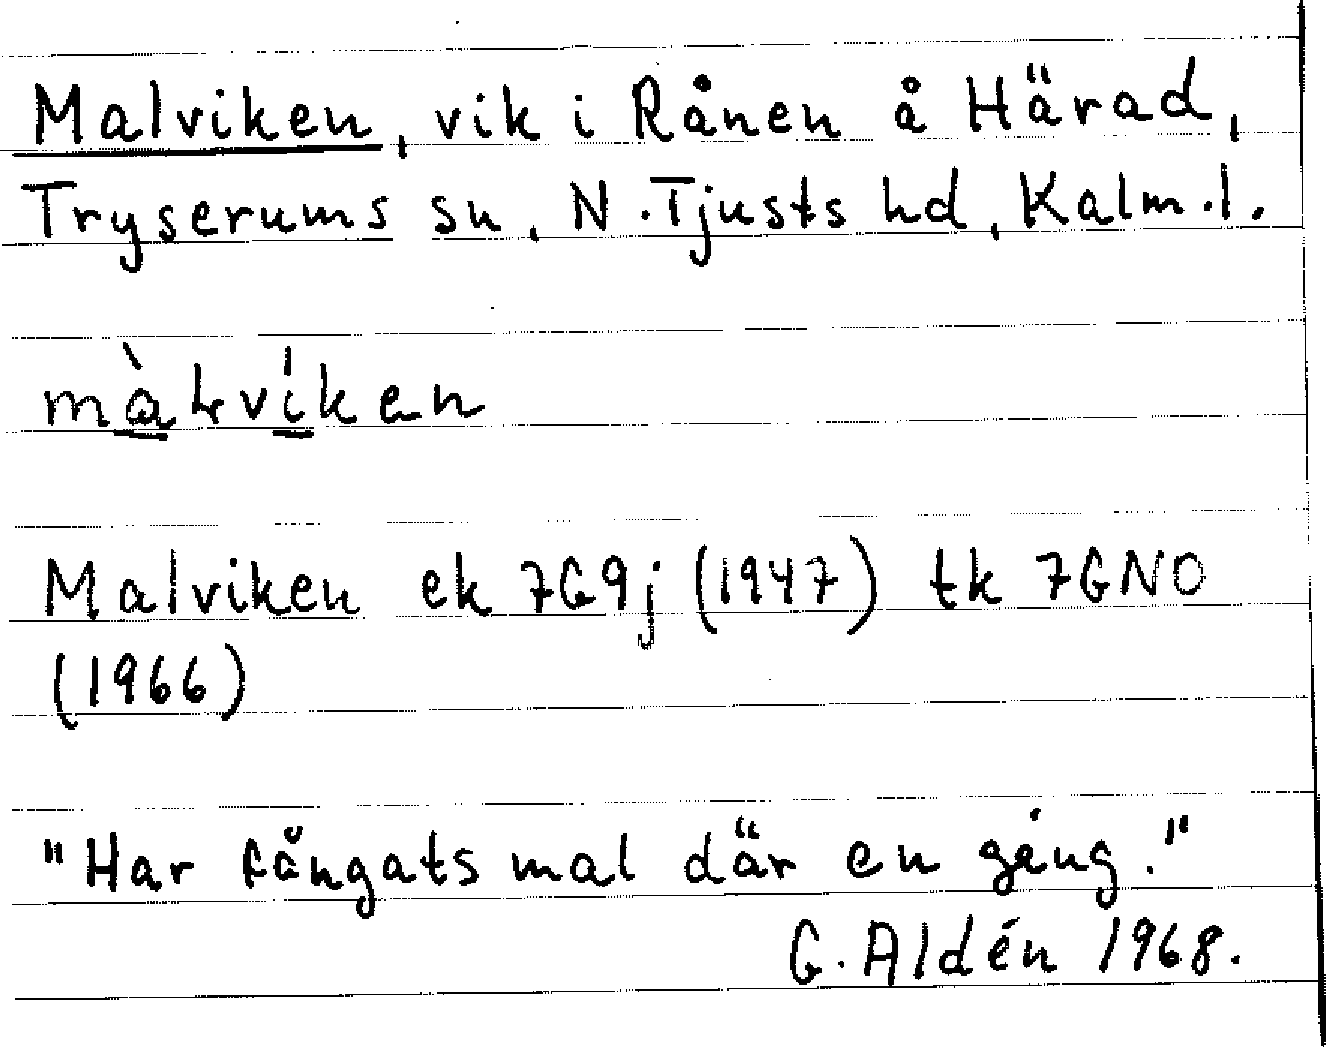 Malviken, vik i Rånen å Härad,
Tryserums sn, N. Tjusts hd, Kalm. l.
màlvíken
Malviken ek 7G9j (1947) tk 7GNO
(1966)
"Har fångats mal där en gång."
G. Aldén 1968.